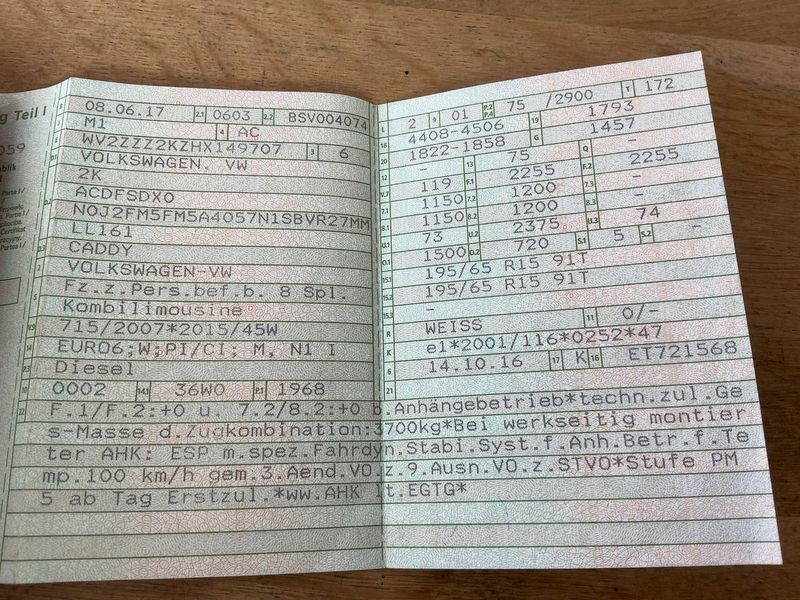 g Teil I
059
blik
08.06.17 2.1 0603 2.2 BSV004074
M1 4 AC
WV2ZZZ2KZHX149707 3 6
VOLKSWAGEN. VW
2K
ACDFSDX0
NOJ2FM5FM5A4057N1SBVR27MM
LL161
CADDY
VOLKSWAGEN-VW
Fz.z.Pers.bef.b. 8 Spl.
Kombilimousine
715/2007*2015/45W
EURO6;W;PI/CI; M, N1 I
Diesel
10 0002 14.1 36W0 P.1 1968
L 2 9 01 P.2 P.4 75 /2900 T 172
18 4408-4506 19 1793
20 1822-1858 G 1457
12 - 13 75 Q -
V.7 119 F.1 2255 F.2 2255
7.1 1150 7.2 1200 7.3 -
8.1 1150 8.2 1200 8.3 -
U.1 73 U.2 2375 U.3 74
O.1 1500 O.2 720 S.1 5 S.2 -
15.1 195/65 R15 91T
15.2 195/65 R15 91T
15.3 -
R WEISS 11 0/-
K e1*2001/116*0252*47
6 14.10.16 17 K 16 ET721568
21
22 F.1/F.2:+0 u. 7.2/8.2:+0 b.Anhängebetrieb*techn.zul.Ge
s-Masse d.Zugkombination:3700kg*Bei werkseitig montier
ter AHK: ESP m.spez.Fahrdyn.Stabi.Syst.f.Anh.Betr.f.Te
mp.100 km/h gem.3.Aend.VO.z.9.Ausn.VO.z.STVO*Stufe PM
5 ab Tag Erstzul.*ww.AHK lt.EGTG*